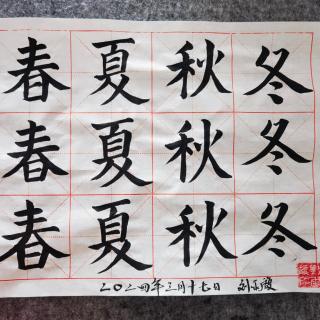 春夏秋冬
春夏秋冬
春夏秋冬
二〇二四年三月十七日